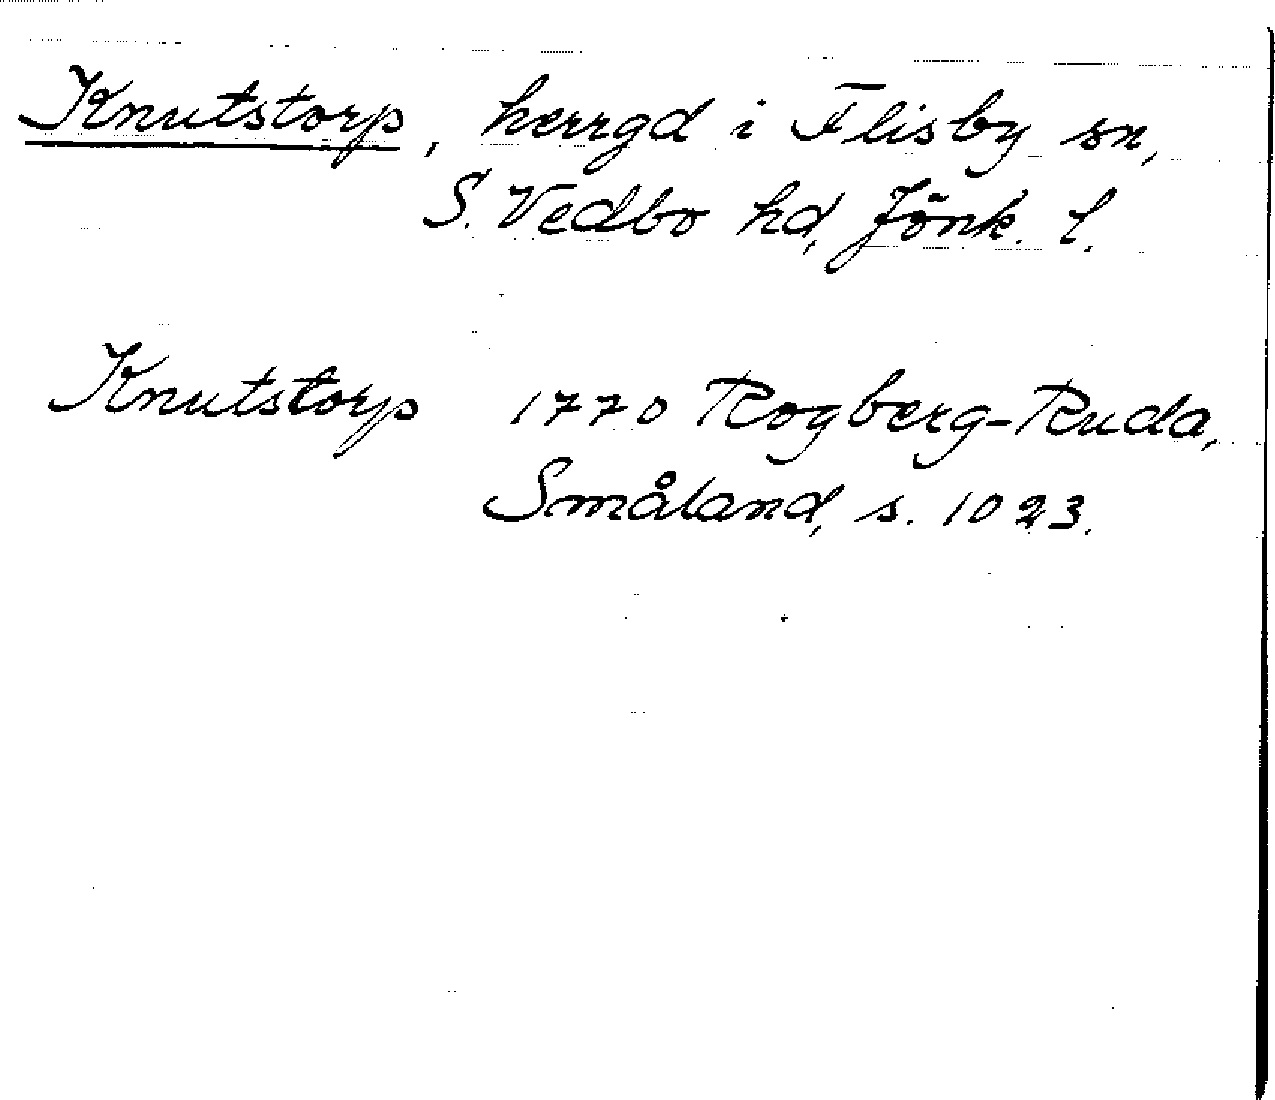 Knutstorp, herrgd i Flisby sn,
S. Vedbo hd, Jönk. l.
Knutstorp 1770 Rogberg-Ruda,
Småland, s. 1023.